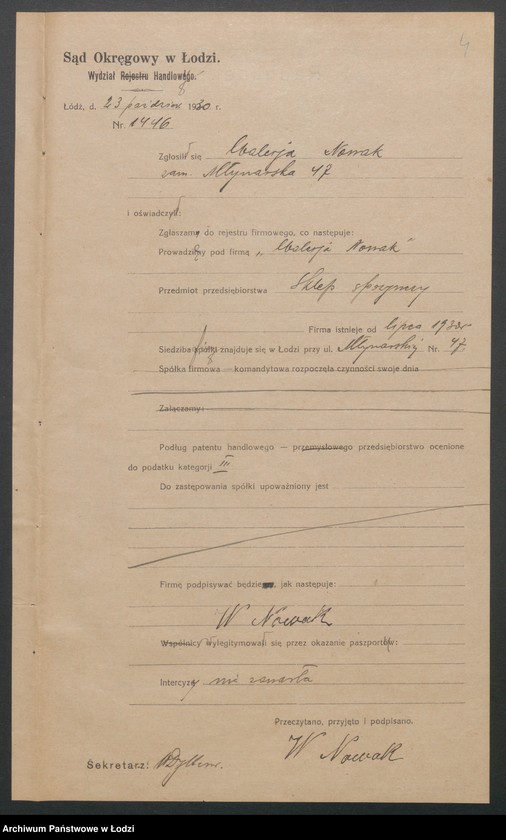 4
Sąd Okręgowy w Łodzi.
Wydział Rejestru Handlowego.
Łódź, d. 23 paździer 1930 r.
Nr. 1446
Zgłosił się Walerja Nowak
zam. Młynarska 47
i oświadczył:
Zgłaszamy do rejestru firmowego, co następuje:
Prowadzimy pod firmą „Walerja Nowak"
Przedmiot przedsiębiorstwa Sklep spożywczy
Firma istnieje od lipca 1930 r
Siedziba spółki znajduje się w Łodzi przy ul. Młynarskiej Nr. 47
Spółka firmowa — komandytowa rozpoczęła czynności swoje dnia
Załączamy:
Podług patentu handlowego — przemysłowego przedsiębiorstwo ocenione
do podatku kategorji III
Do zastępowania spółki upoważniony jest
Firmę podpisywać będzie, jak następuje:
W Nowak
Wspólnicy wylegitymowali się przez okazanie paszportów:
Intercyzy nie zawarła
Przeczytano, przyjęto i podpisano.
W Nowak
Sekretarz:
Archiwum Państwowe w Łodzi